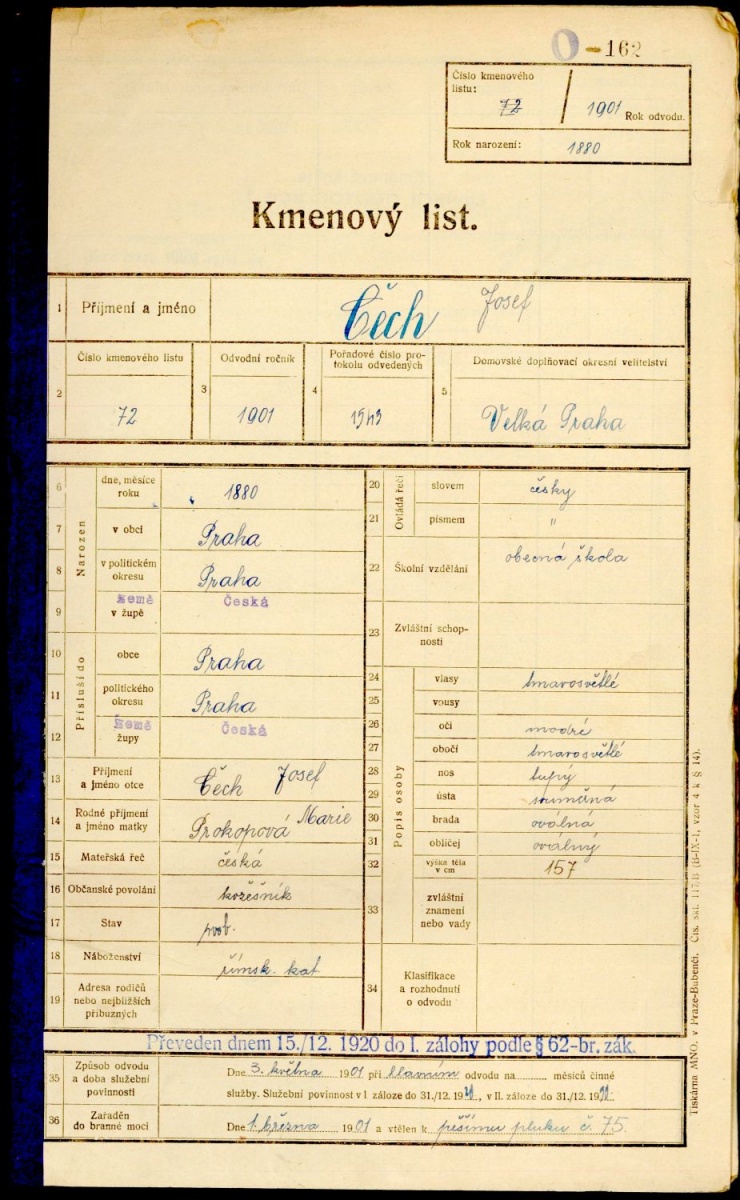 0 - 162
Číslo kmenového
listu:
72 / 1901 Rok odvodu.
Rok narození: 1880
Kmenový list.
1 Příjmení a jméno Čech Josef
Číslo kmenového listu Odvodní ročník Pořadové číslo pro-
tokolu odvedených Domovské doplňovací okresní velitelství
2 72 3 1901 4 1943 5 Velká Praha
Narozen
6 dne, měsíce
roku 1880
7 v obci Praha
8 v politickém
okresu Praha
9 Země
v župě Česká
Přísluší do
10 obce Praha
11 politického
okresu Praha
12 Země
župy Česká
13 Příjmení
a jméno otce Čech Josef
14 Rodné příjmení
a jméno matky Prokopová Marie
15 Mateřská řeč česká
16 Občanské povolání kožešník
17 Stav svob.
18 Náboženství římsk. kat
19 Adresa rodičů
nebo nejbližších
příbuzných
Ovládá řeči
20 slovem česky
21 písmem "
22 Školní vzdělání obecná škola
23 Zvláštní schop-
nosti
Popis osoby
24 vlasy tmavosvětlé
25 vousy
26 oči modré
27 obočí tmavosvětlé
28 nos tupý
29 ústa souměrná
30 brada oválná
31 obličej oválný
32 výška těla
v cm 157
33 zvláštní
znamení
nebo vady
34 Klasifikace
a rozhodnutí
o odvodu
Převeden dnem 15./12. 1920 do I. zálohy podle § 62-br. zák.
35 Způsob odvodu
a doba služební
povinnosti
Dne 3. května 1901 při hlavním odvodu na ......... měsíců činné
služby. Služební povinnost v I. záloze do 31./12. 19, v II. záloze do 31./12. 19
36 Zařaděn
do branné moci
Dne 1. března 1901 a vtělen k pěšímu pluku č. 75.
Tiskárna MNO. v Praze-Bubenči. Čís. skl. 117/B (B-IX-1, vzor 4 k § 14).